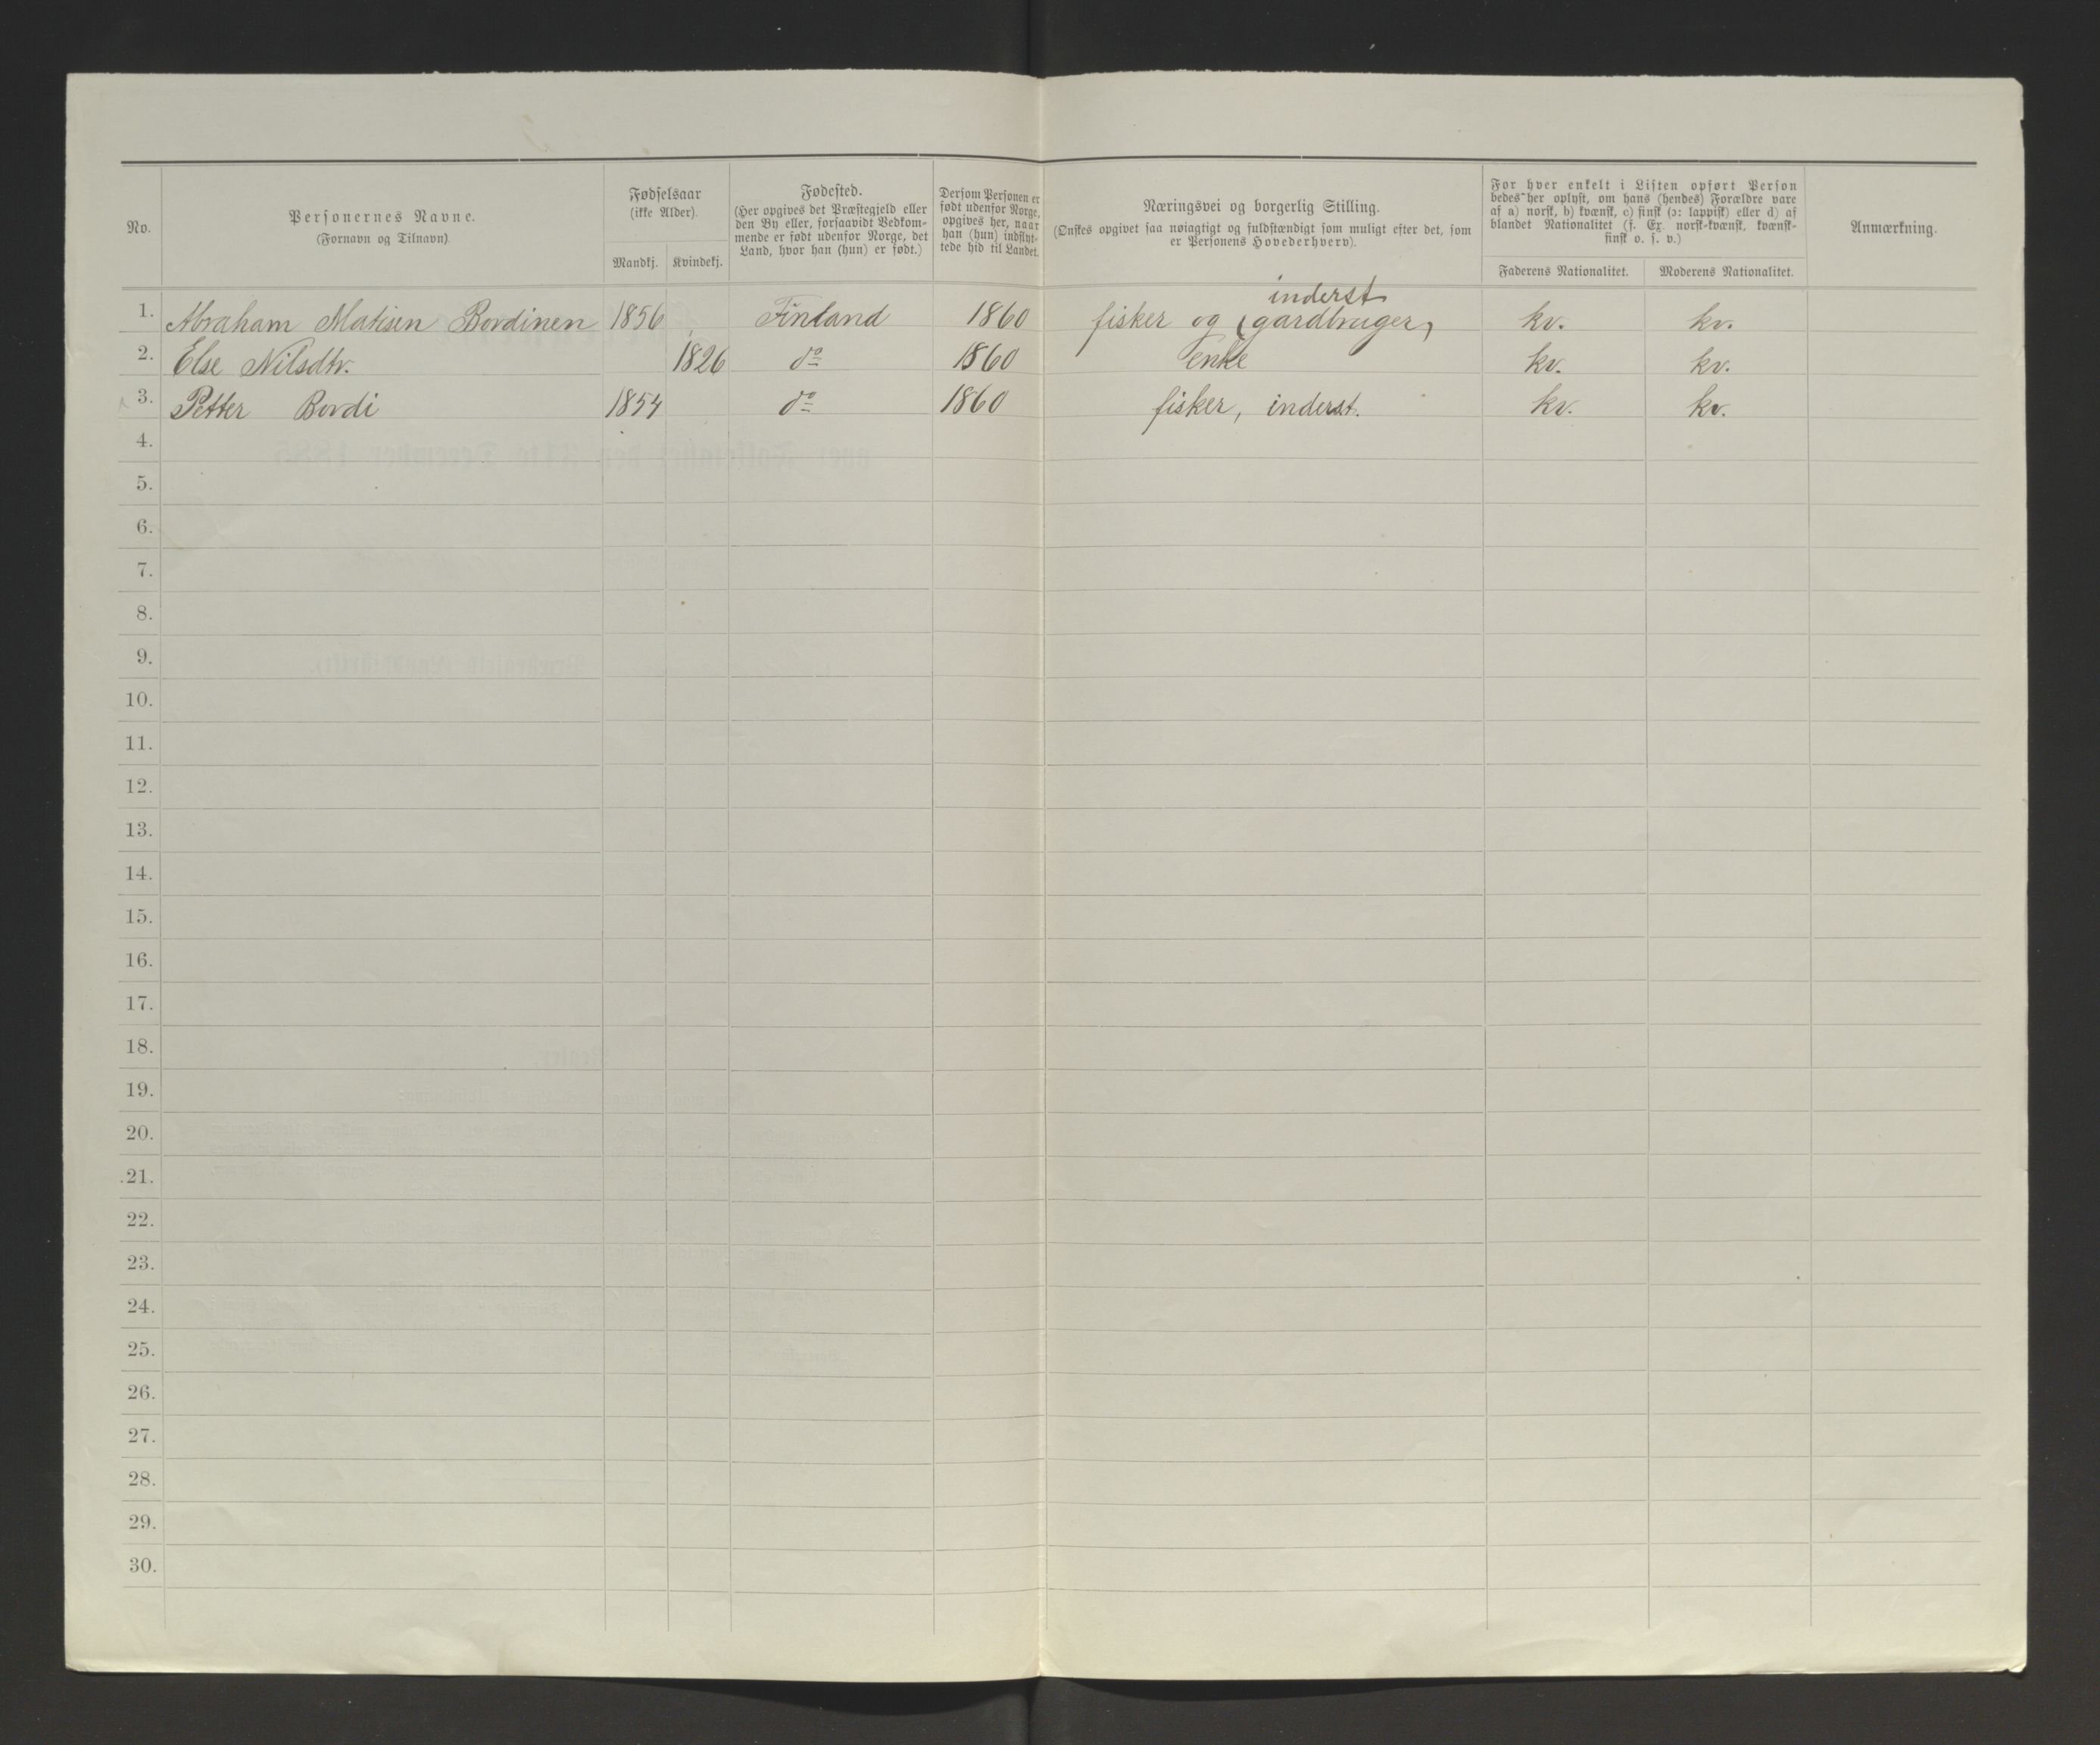 No.
Personernes Navne.
(Fornavn og Tilnavn)
Fødselsaar
(ikke Alder).
Mandkj.
Kvindekj.
Fødested.
(Her opgives det Præstegjeld eller
den By eller, forsaavidt Vedkom-
mende er født udenfor Norge, det
Land, hvor han (hun) er født.)
Dersom Personen er
født udenfor Norge,
opgives her, naar
han (hun) indflyt-
tede hid til Landet.
Næringsvei og borgerlig Stilling.
(Ønskes opgivet saa nøiagtigt og fuldstændigt som muligt efter det, som
er Personens Hovederhverv).
For hver enkelt i Listen opført Person
bedes her oplyst, om hans (hendes) Forældre vare
af a) norsk, b) kvænsk, c) finsk (ɔ: lappisk) eller d) af
blandet Nationalitet (f. Ex. norsk-kvænsk, kvænsk-
finsk o. s. v.)
Faderens Nationalitet.
Moderens Nationalitet.
Anmærkning.
inderst
1. Abraham Matisen Bordinen 1856 Finland 1860 fisker og (gardbruger) kv. kv.
2. Else Nilsdtr. 1826 do 1860 enke kv. kv.
3. Petter Bordi 1854 do 1860 fisker, inderst. kv. kv.
4.
5.
6.
7.
8.
9.
10.
11.
12.
13.
14.
15.
16.
17.
18.
19.
20.
21.
22.
23.
24.
25.
26.
27.
28.
29.
30.